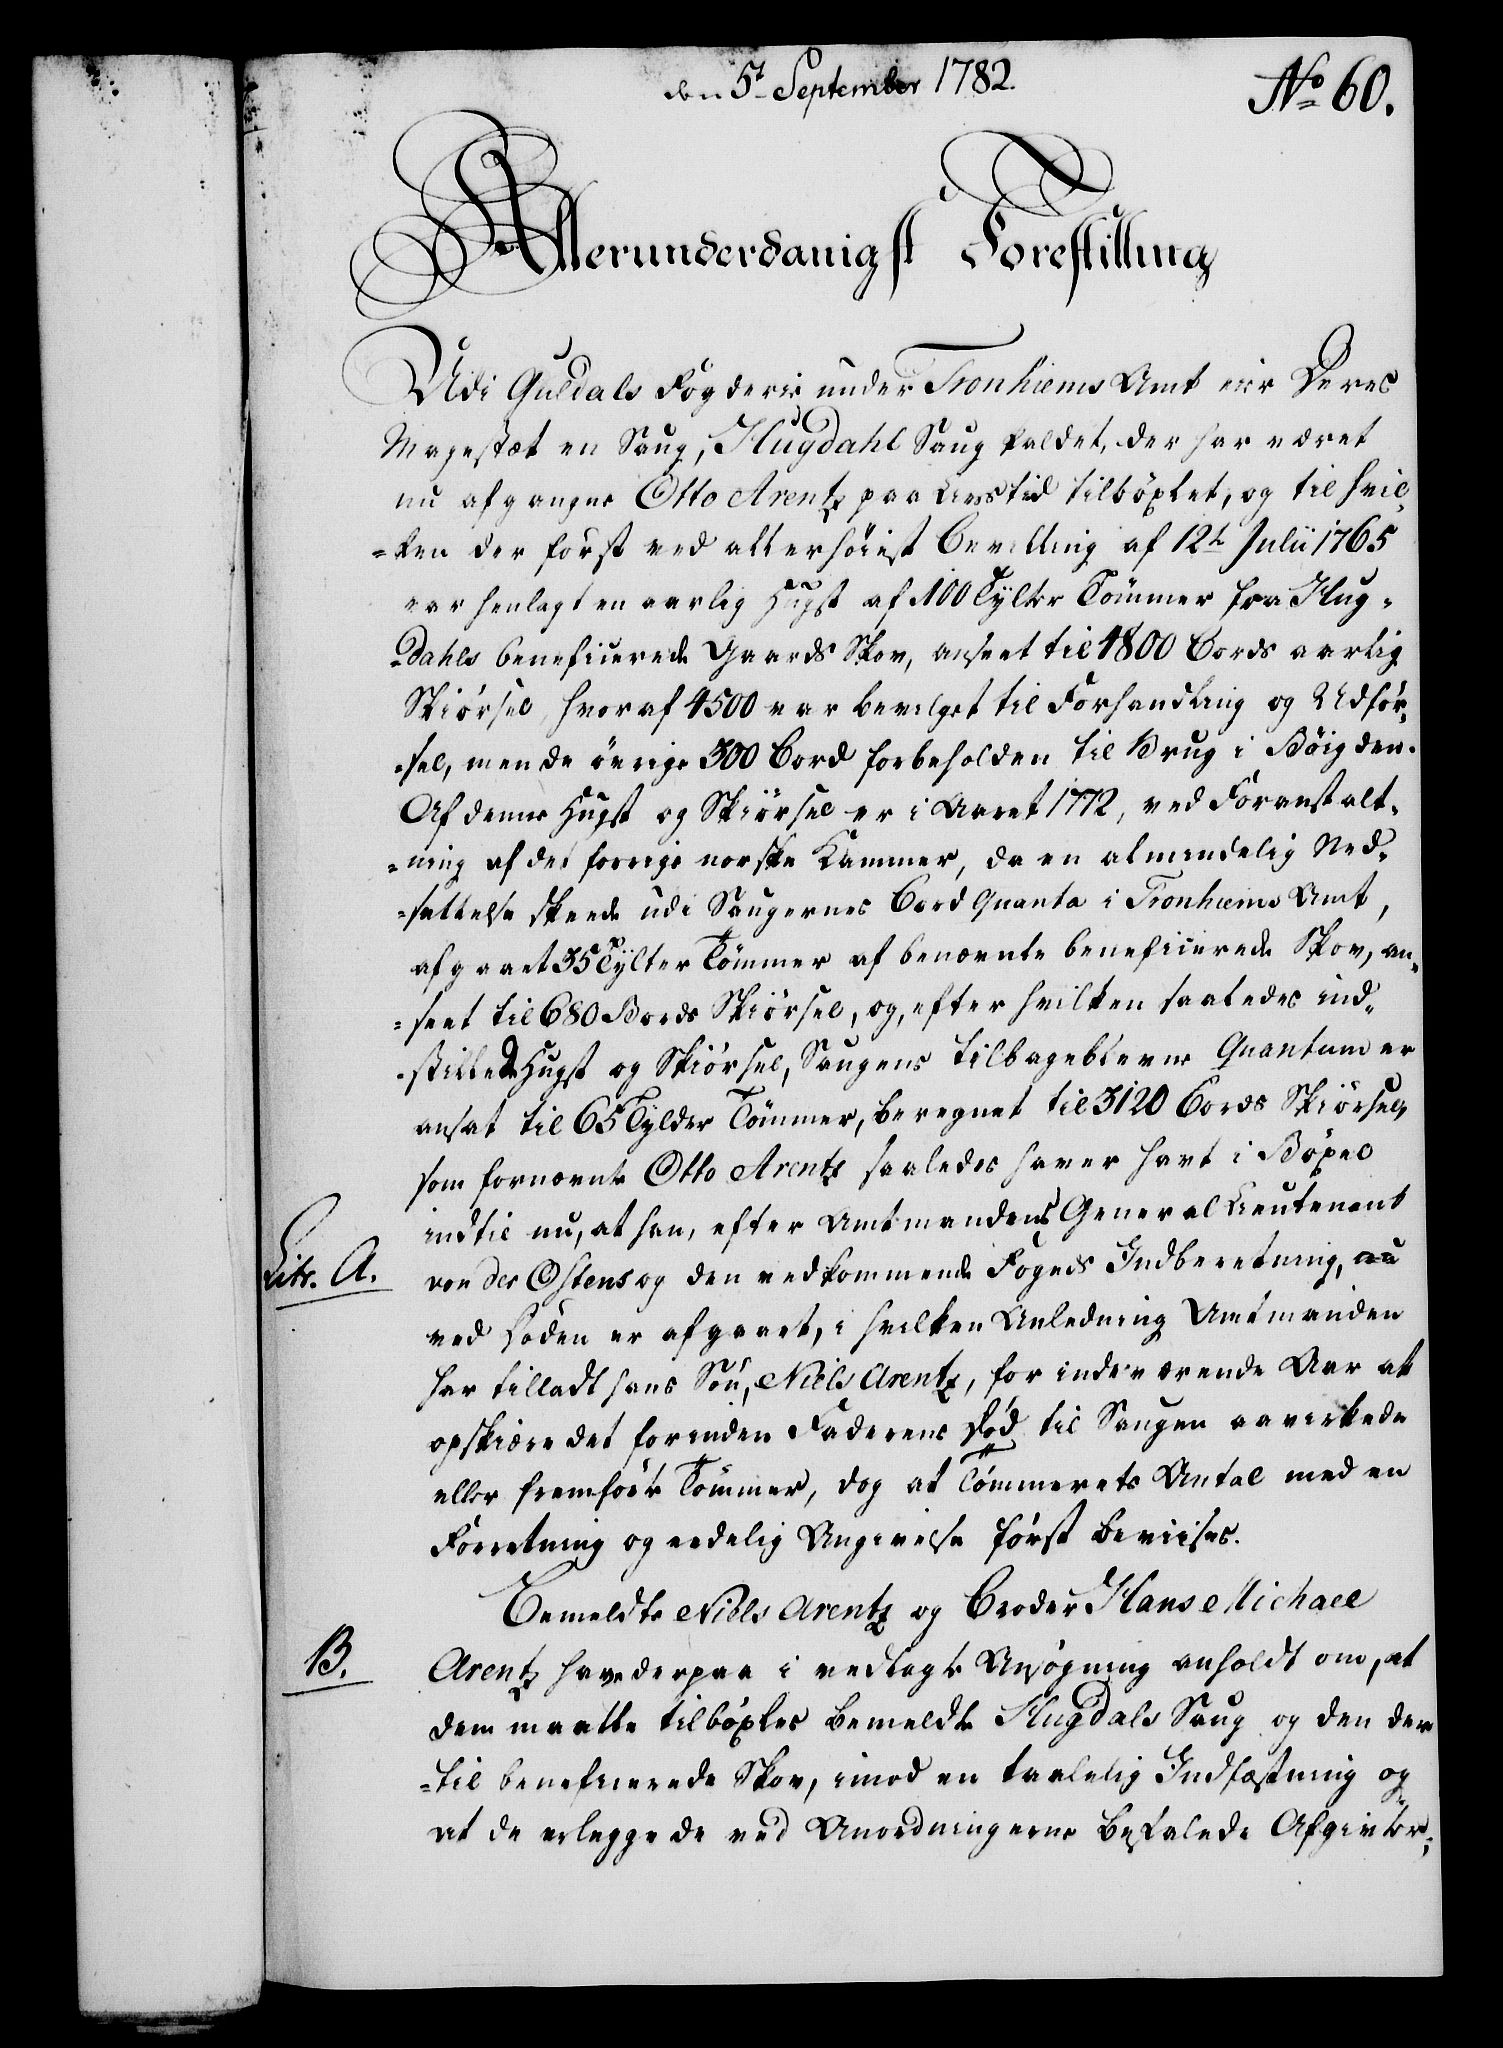 den 5t September 1782.
No 60.
Allerunderdanigst Forestilling
Udi Guldals Fogderie under Tronhiems Amt eier Deres
Majestæt en Saug, Hugdahl Saug kaldet, der har været
nu afgangne Otto Arentz paa Livs tid tilböxlet, og til hvil-
-ken der först ved allerhöiest Bevilling af 12te Julii 1765
var henlagt en aarlig Hugst af 100 Tylter Tömmer fra Hug-
-dahls beneficerede Gaards Skov, anseet til 4800 Bords aarlig
Skiörsel, hvoraf 4500 var bevilget til Forhandling og Udför-
-sel, men de övrige 300 Bord forbeholden til Brug i Böigden.
Af denne Hugst og Skiörsel er i Aaret 1772, ved Foranstalt-
-ning af det forrige norske Kammer, da en almindelig Ned-
-sættelse skeede udi Saugernes Bord Quanta i Tronhiems Amt,
afgaaet 35 Tylter Tömmer af benævnte beneficerede Skov, an-
-seet til 1680 Bords Skiörsel, og, efter hvilken saaledes ind-
-stillede Hugst og Skiörsel, Saugens tilbageblevne Quantum er
ansat til 65 Tylder Tömmer, beregnet til 3120 Bords Skiörsel,
som fornævnte Otto Arentz saaledes haver havt i Böxel
indtil nu, at han, efter Amtmandens General Lieutenant
Litr. A.
von der Ostens og den vedkommende Fogeds Indberetning, nu
ved Döden er afgaaet, i hvilken Anledning Amtmanden
har tilladt hans Sön, Niels Arentz, for indeværende Aar at
opskiære det forinden Faderens Död til Saugen aavirkede
eller fremförte Tömmer, dog at Tömmerets Antal med en
Forretning og eedelig Angivelse först beviises.
Bemeldte Niels Arentz og Broder Hans Michael
B.
Arentz have derpaa i vedlagte Ansögning anholdt om, at
dem maatte tilböxles bemeldte Hugdals Saug og den der-
-til beneficerede Skov, imod en taalelig Indfæstning og
at de erlegge de ved Anordningerne befalede Afgivter;